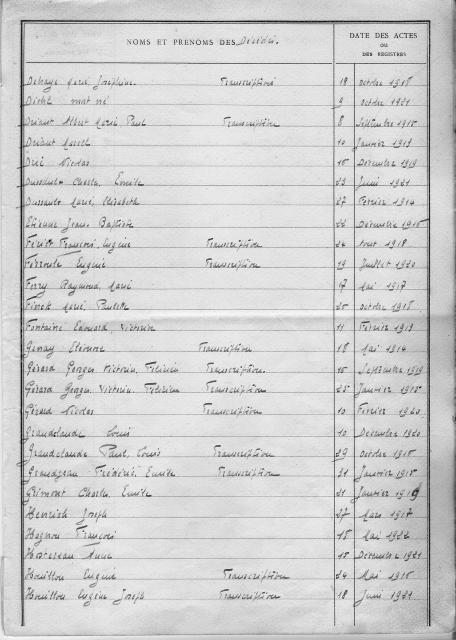 NOMS ET PRENOMS DES Décédés.
DATE DES ACTES
OU
DES REGISTRES
Marie Joséphine Transcription 18 octobre 1918
mort né 9 octobre 1921
Driant Albert Marie Paul Transcription 8 Septembre 1915
Driant Marcel 10 Janvier 1919
Nicolas 15 Décembre 1919
Dussault Charles, Emile 23 Juin 1921
Dussault Marie, Elisabeth 27 Février 1914
Etienne Jean Baptiste 22 Décembre 1915
François, Eugène Transcription 24 Aout 1918
Eugène Transcription 19 Juillet 1920
Ferry Raymond, Marie 17 Mai 1917
Finck Marie, 25 octobre 1918
Fontaine Edouard, Victorin 11 Février 1913
Transcription 18 Mai 1914
Gérard Georges Victorin, Transcription. 15 Septembre 1919
Gérard Georges, Victorin, Transcription 25 Janvier 1915
Gérard Nicolas Transcription 10 Février 1920
Grandclaude Louis 10 Décembre 1920
Grandclaude Paul, Louis Transcription 29 octobre 1915
Grandjean Frédéric, Emile Transcription 31 Janvier 1915
Grimont Charles, Emile 21 Janvier
Henrich Joseph 27 Mars 1917
François 15 Mai 1922
Anne 15 Décembre 1921
Houillon Eugène Transcription 24 Mai 1915
Houillon Eugène Joseph Transcription 18 Juin 1921